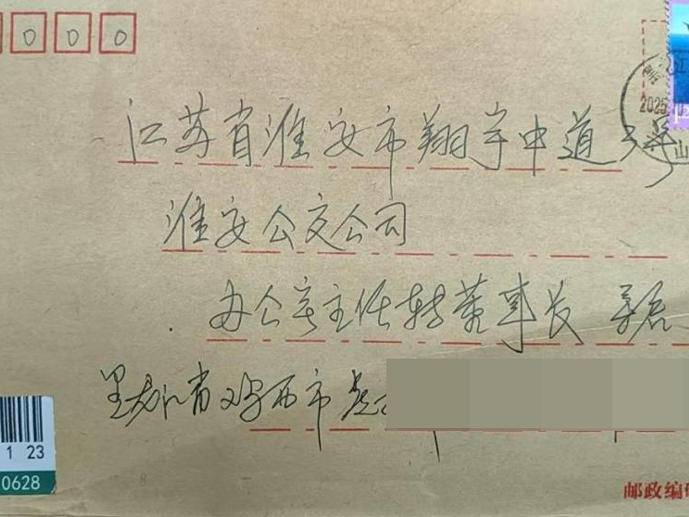 000
2025
江苏省淮安市翔宇中道3号
山
淮安公交公司
办公室主任转董事长 亲启
黑龙江省鸡西市
1 23
0628
邮政编